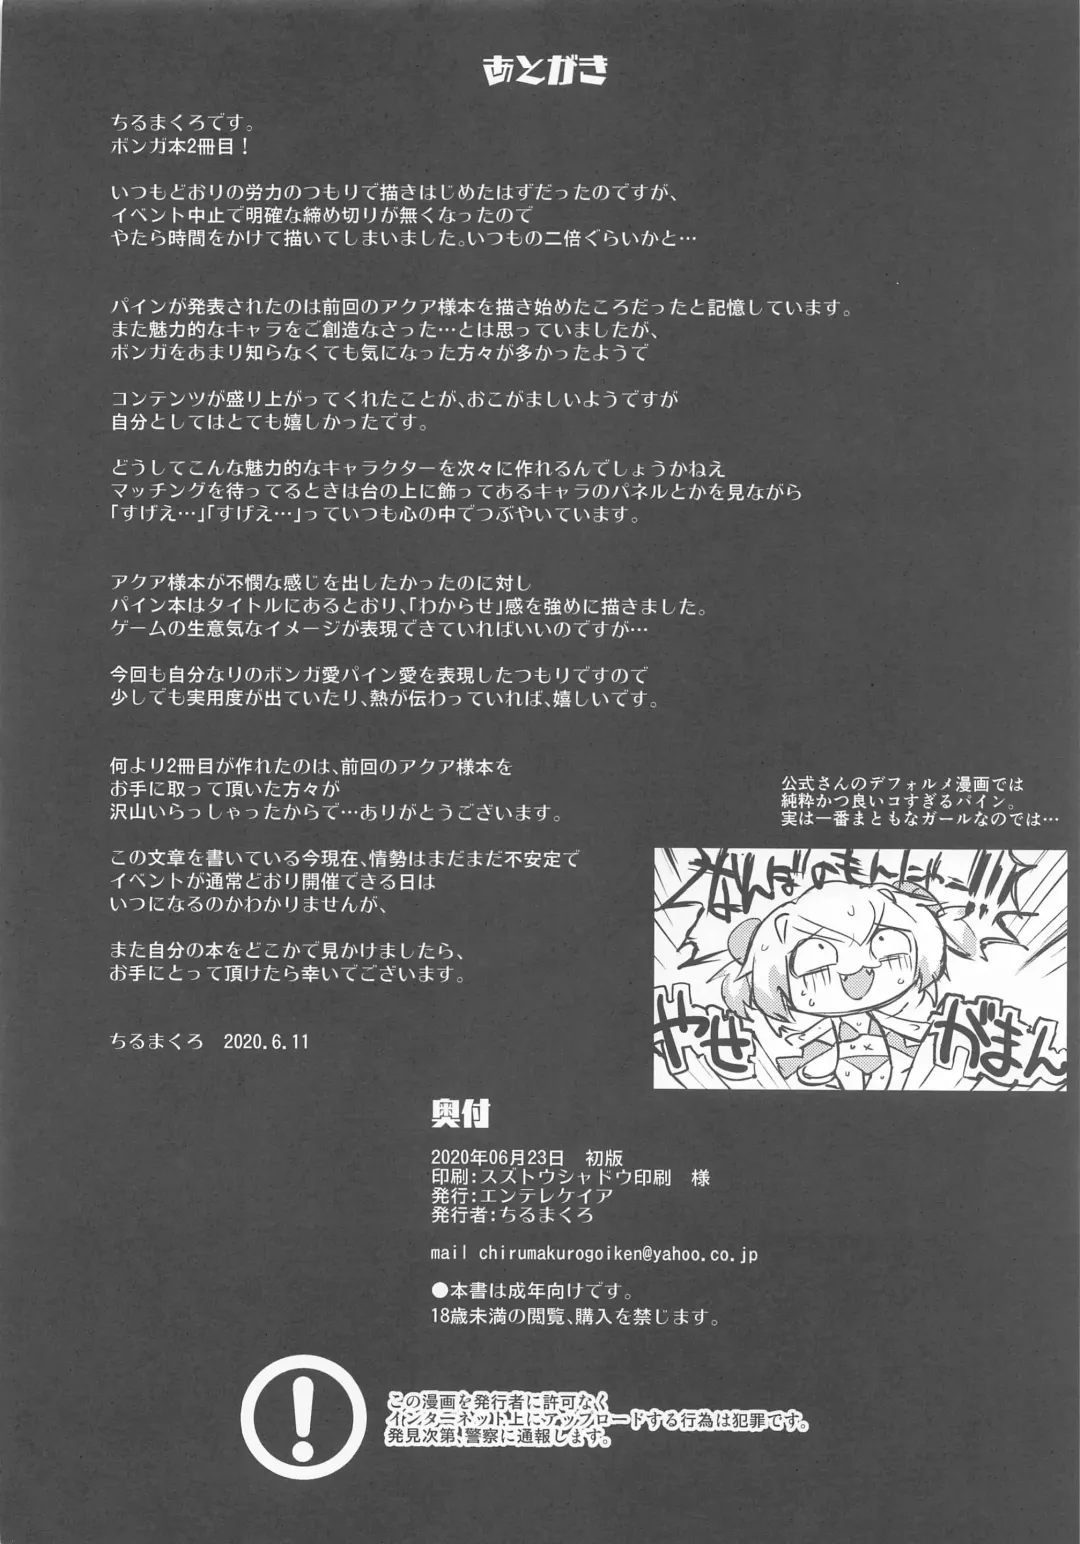 あとがき
ちるまくろです。
ボンガ本2冊目！
いつもどおりの労力のつもりで描きはじめたはずだったのですが、
イベント中止で明確な締め切りが無くなったので
やたら時間をかけて描いてしまいました。いつもの二倍ぐらいかと…
パインが発表されたのは前回のアクア様本を描き始めたころだったと記憶しています。
また魅力的なキャラをご創造なさった…とは思っていましたが、
ボンガをあまり知らなくても気になった方々が多かったようで
コンテンツが盛り上がってくれたことが、おこがましいようですが
自分としてはとても嬉しかったです。
どうしてこんな魅力的なキャラクターを次々に作れるんでしょうかねえ
マッチングを待ってるときは台の上に飾ってあるキャラのパネルとかを見ながら
「すげえ…」「すげえ…」っていつも心の中でつぶやいています。
アクア様本が不憫な感じを出したかったのに対し
パイン本はタイトルにあるとおり、「わからせ」感を強めに描きました。
ゲームの生意気なイメージが表現できていればいいのですが…
今回も自分なりのボンガ愛パイン愛を表現したつもりですので
少しでも実用度が出ていたり、熱が伝わっていれば、嬉しいです。
何より2冊目が作れたのは、前回のアクア様本を
お手に取って頂いた方々が
沢山いらっしゃったからで…ありがとうございます。
この文章を書いている今現在、情勢はまだまだ不安定で
イベントが通常どおり開催できる日は
いつになるのかわかりませんが、
また自分の本をどこかで見かけましたら、
お手にとって頂けたら幸いでございます。
ちるまくろ　2020.6.11
公式さんのデフォルメ漫画では
純粋かつ良いコすぎるパイン。
実は一番まともなガールなのでは…
なんぼのもんじゃー!!!
やせ
がまん
奥付
2020年06月23日　初版
印刷：スズトウシャドウ印刷　様
発行：エンテレケイア
発行者：ちるまくろ
mail chirumakurogoiken@yahoo.co.jp
●本書は成年向けです。
18歳未満の閲覧、購入を禁じます。
!
この漫画を発行者に許可なく
インターネット上にアップロードする行為は犯罪です。
発見次第、警察に通報します。